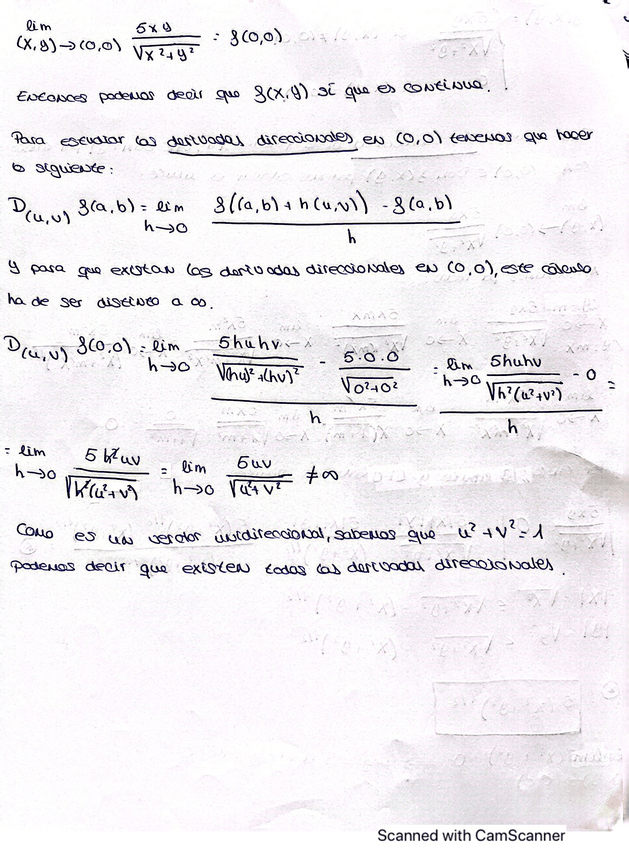 lim (x,y)→(0,0) 5xy / √(x²+y²) = f(0,0)
Entonces podemos decir que f(x,y) sí que es continua.
Para estudiar las derivadas direccionales en (0,0) tenemos que hacer
lo siguiente:
D(u,v) f(a,b) = lim h→0 (f((a,b) + h(u,v)) - f(a,b)) / h
Y para que existan las derivadas direccionales en (0,0), este cálculo
ha de ser distinto a ∞.
D(u,v) f(0,0) = lim h→0 (5huhv / √((hu)²+(hv)²) - 5·0·0 / √(0²+0²)) / h = lim h→0 (5huhv / √(h²(u²+v²)) - 0) / h =
= lim h→0 5h²uv / √(h²(u²+v²)) = lim h→0 5uv / √(u²+v²) ≠ ∞
Como es un vector unidireccional, sabemos que u²+v²=1
podemos decir que existen todas las derivadas direccionales.
Scanned with CamScanner